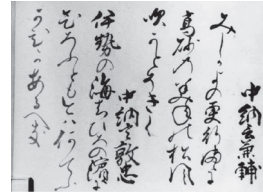 中納言兼輔
みしかよの更行まゝに
高砂のみねの松風
吹かとそきく
中納言敦忠
伊勢の海ちひろの濱に
ひろふとも今は何てふ
かひかあるへき